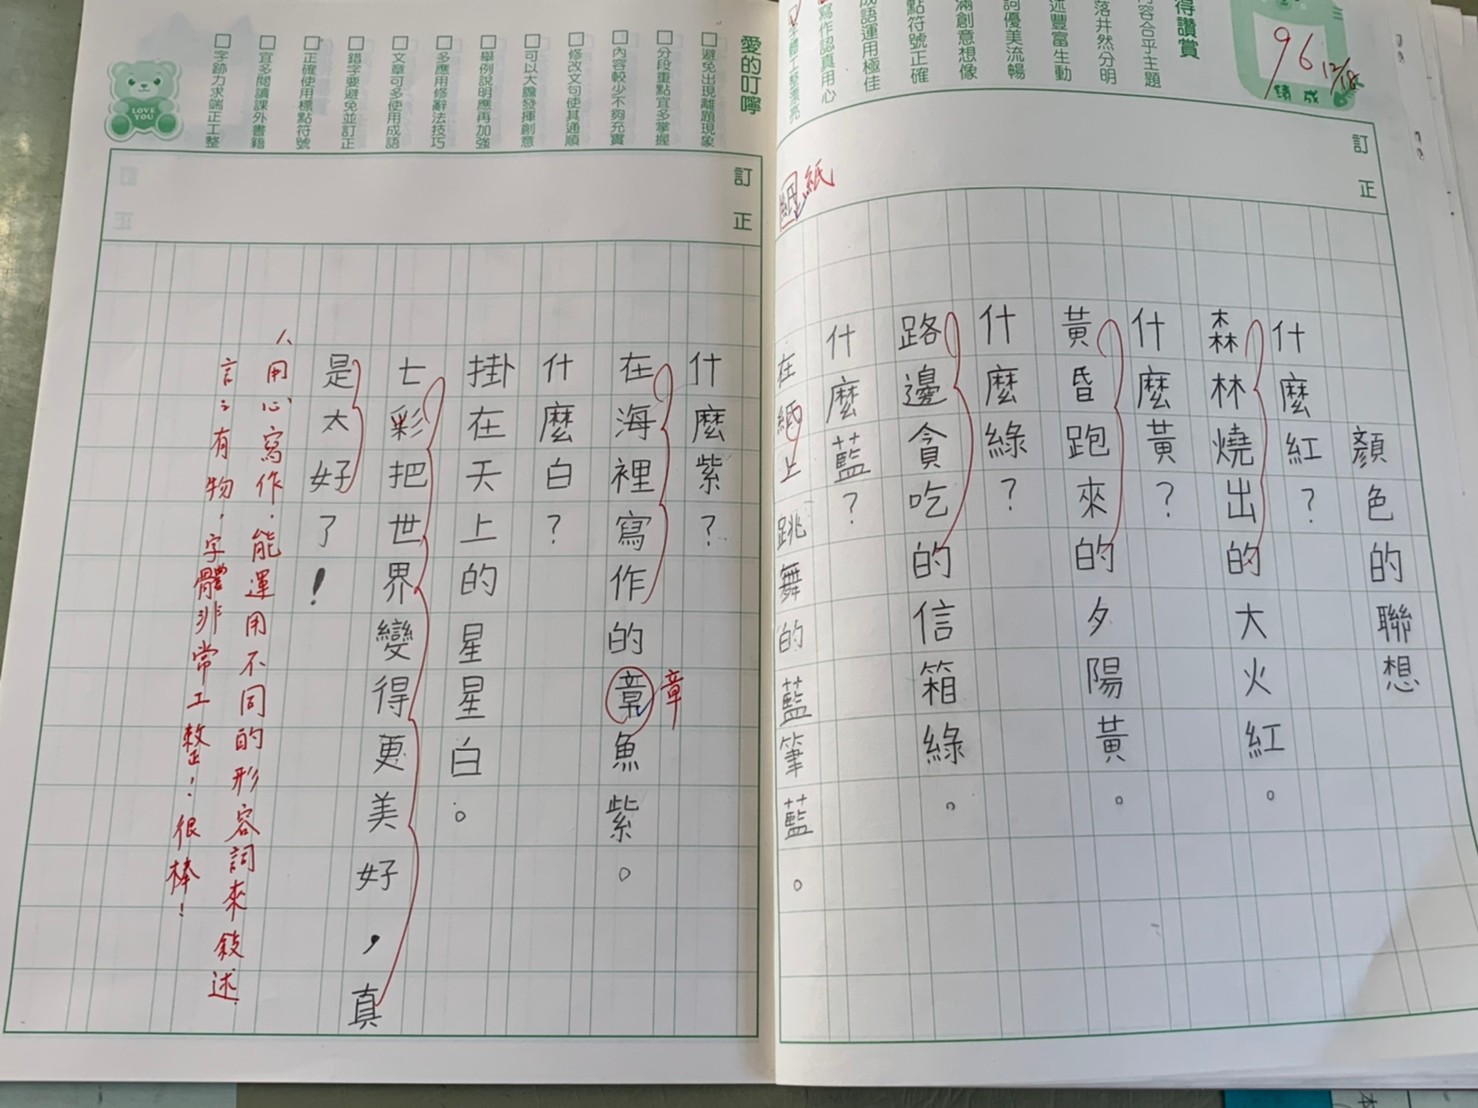 得讚賞
內容合乎主題
落井然分明
述豐富生動
詞優美流暢
滿創意想像
點符號正確
成語運用極佳
寫作認真用心
96
12/18
成績
訂正
紙
顏色的聯想
什麼紅?
森林燒出的大火紅。
什麼黃?
黃昏跑來的夕陽黃。
什麼綠?
路邊貪吃的信箱綠。
什麼藍?
在紙上跳舞的藍筆藍。
愛的叮嚀
□避免出現離題現象
□分段重點宜多掌握
□內容較少不夠充實
□修改文句使其通順
□可以大膽發揮創意
□舉例說明應再加強
□多應用修辭法技巧
□文章可多使用成語
□錯字要避免並訂正
□正確使用標點符號
□宜多閱讀課外書籍
□字跡力求端正工整
LOVE YOU
訂正
什麼紫?
在海裡寫作的章魚紫。
章
什麼白?
掛在天上的星星白。
七彩把世界變得更美好,真
是太好了!
用心寫作,能運用不同的形容詞來敍述
言之有物,字體非常工整!很棒!